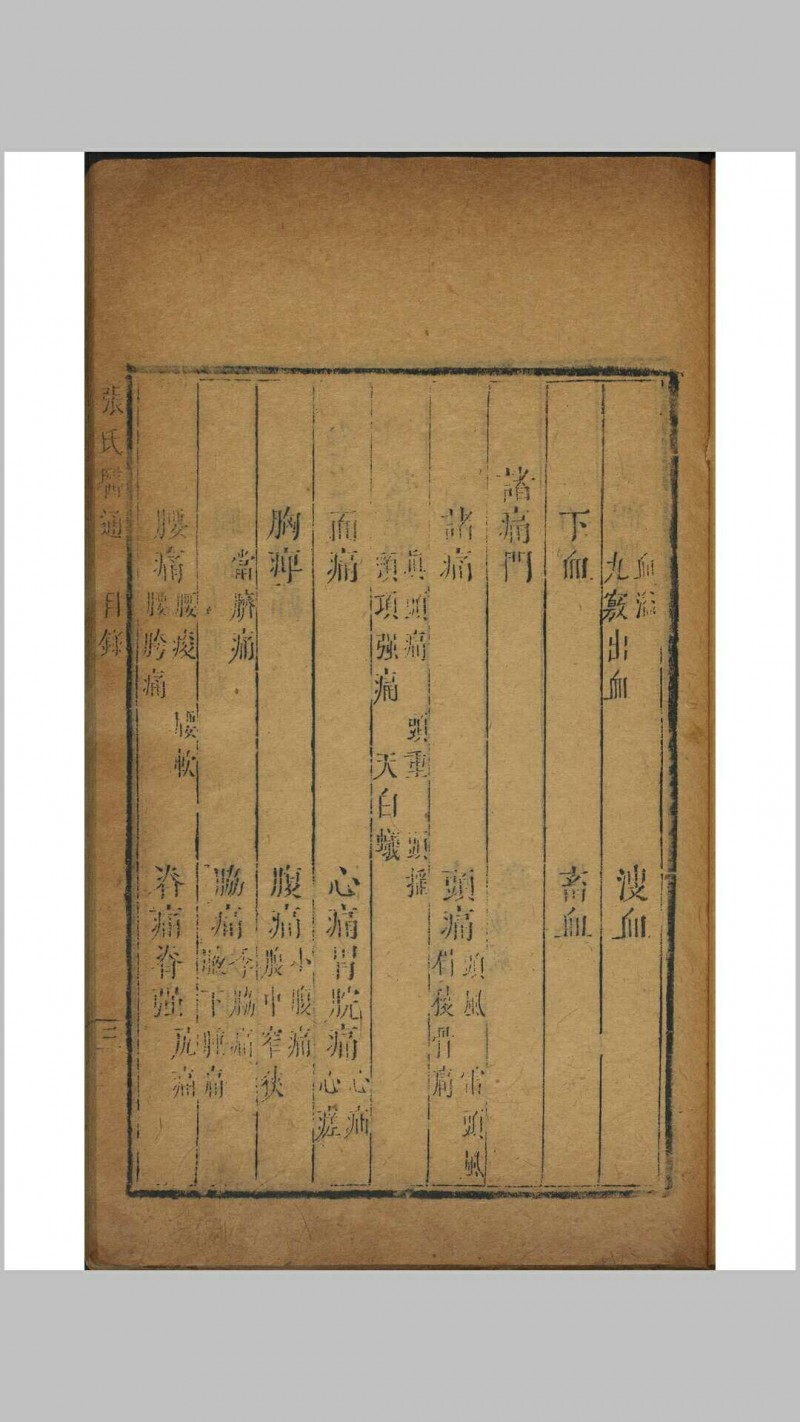 血溢 九竅出血 溲血
下血 畜血
諸痛門
諸痛 頭痛 頭風 雷頭風 眉稜骨痛
真頭痛 頭重 頭搖 頸項强痛 天白蟻
面痛 心痛胃脘痛 心痛 心痓
胸痺 腹痛 小腹痛 腹中窄狹
當臍痛 脇痛 季脇痛 腋下腫痛
腰痛 腰痠 腰軟 腰胯痛 脊痛脊强 尻痛
張氏醫通 目錄 三